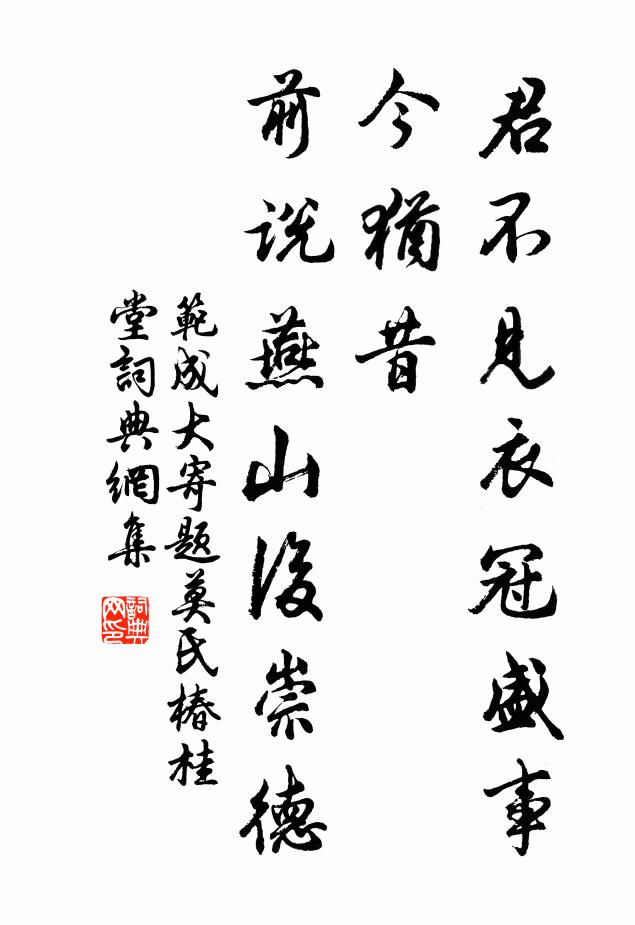 君不見衣冠盛事
今猶昔
前說燕山後崇德
範成大寄題莫氏椿桂
堂詞典網集
詞典
网印